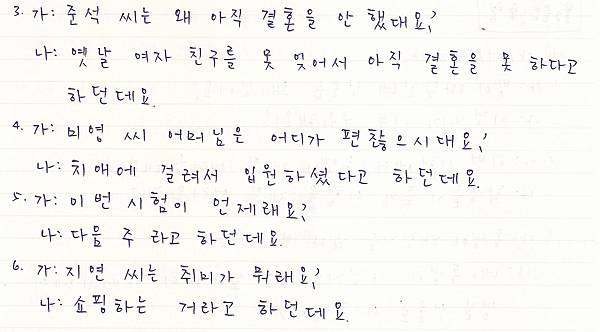 3. 가: 준석 씨는 왜 아직 결혼을 안 했대요?
나: 옛날 여자 친구를 못 잊어서 아직 결혼을 못 하다고
하던데요.
4. 가: 미영 씨 어머님은 어디가 편찮으시대요?
나: 치애에 걸려서 입원하셨다고 하던데요.
5. 가: 이번 시험이 언제래요?
나: 다음 주 라고 하던데요.
6. 가: 지연 씨는 취미가 뭐래요?
나: 쇼핑하는 거라고 하던데요.